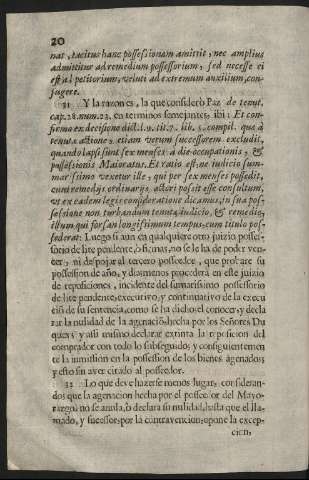 20
nat, tacitus hanc possessionam amittit, nec amplius
admittitur ad remedium possessorium, sed necesse ei
est al petitorium, veluti ad extremum auxilium, con-
fugere.
31 Y la razon es, la que considerò Paz de tenut.
cap. 28. num. 23. en terminos semejantes, ibi: Et con-
firmo ex decisione dict. l. 9. tit. 7. lib. 5. compil. quæ à
tenutæ actione, etiam verum successorem excludit,
quando lapsi sunt sex menses à die occupationis, &
possessionis Maioratus. Et ratio est, ne iudicio sum-
marissimo vexetur ille, qui per sex menses possedit,
cum remedijs ordinarijs actori possit esse consultum,
ut ex eadem legis consideratione dicamus, in sua pos-
sessione non turbandum tenutæ iudicio, & remedio,
illum qui forsan longissimum tempus, cum titulo pos-
sederat: Luego si aun en qualquiere otro juizio posses-
sorio de lite pendente, ò sicuti, no se le ha de poder ven-
cer, ni despojar al tercero posseedor, que probare su
possession de año, y dia, menos procederà en este juizio
de reposiciones, incidente del sumarissimo possessorio
de lite pendente, executivo, y continuativo de la execu
ciõ de su sentencia, como se ha dicho, el conocer, y decla
rar la nulidad de la agenaciõ hecha por los Señores Du
ques; y assi mismo declarar extinta la reposicion del
comprador con todo lo subseguido, y consiguientemen
te la inmission en la possession de los bienes agenados,
y esto sin aver citado al posseedor.
32 Lo que deve hazerse menos lugar, consideran-
dos que la agenacion hecha por el posseedor del Mayo-
razgo, no se anula, ò declara su nulidad, hasta que el lla-
mado, y sucessor, por la contravencion, opone la excep-
cion,